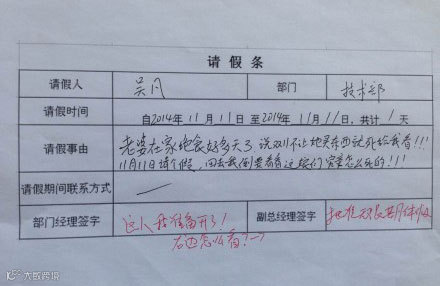 请假条
请假人 吴凡 部门 技术部
请假时间 自2014年11月11日至2014年11月11日,共计1天
请假事由 老婆在家绝食好多天了,说双11不让她买东西就死给我看!!!
11月11日请个假,回去我倒要看看这娘们究竟怎么死的!!!
请假期间联系方式 —
部门经理签字 这人我准备开了! 副总经理签字
右边怎么看?→
大数跨境